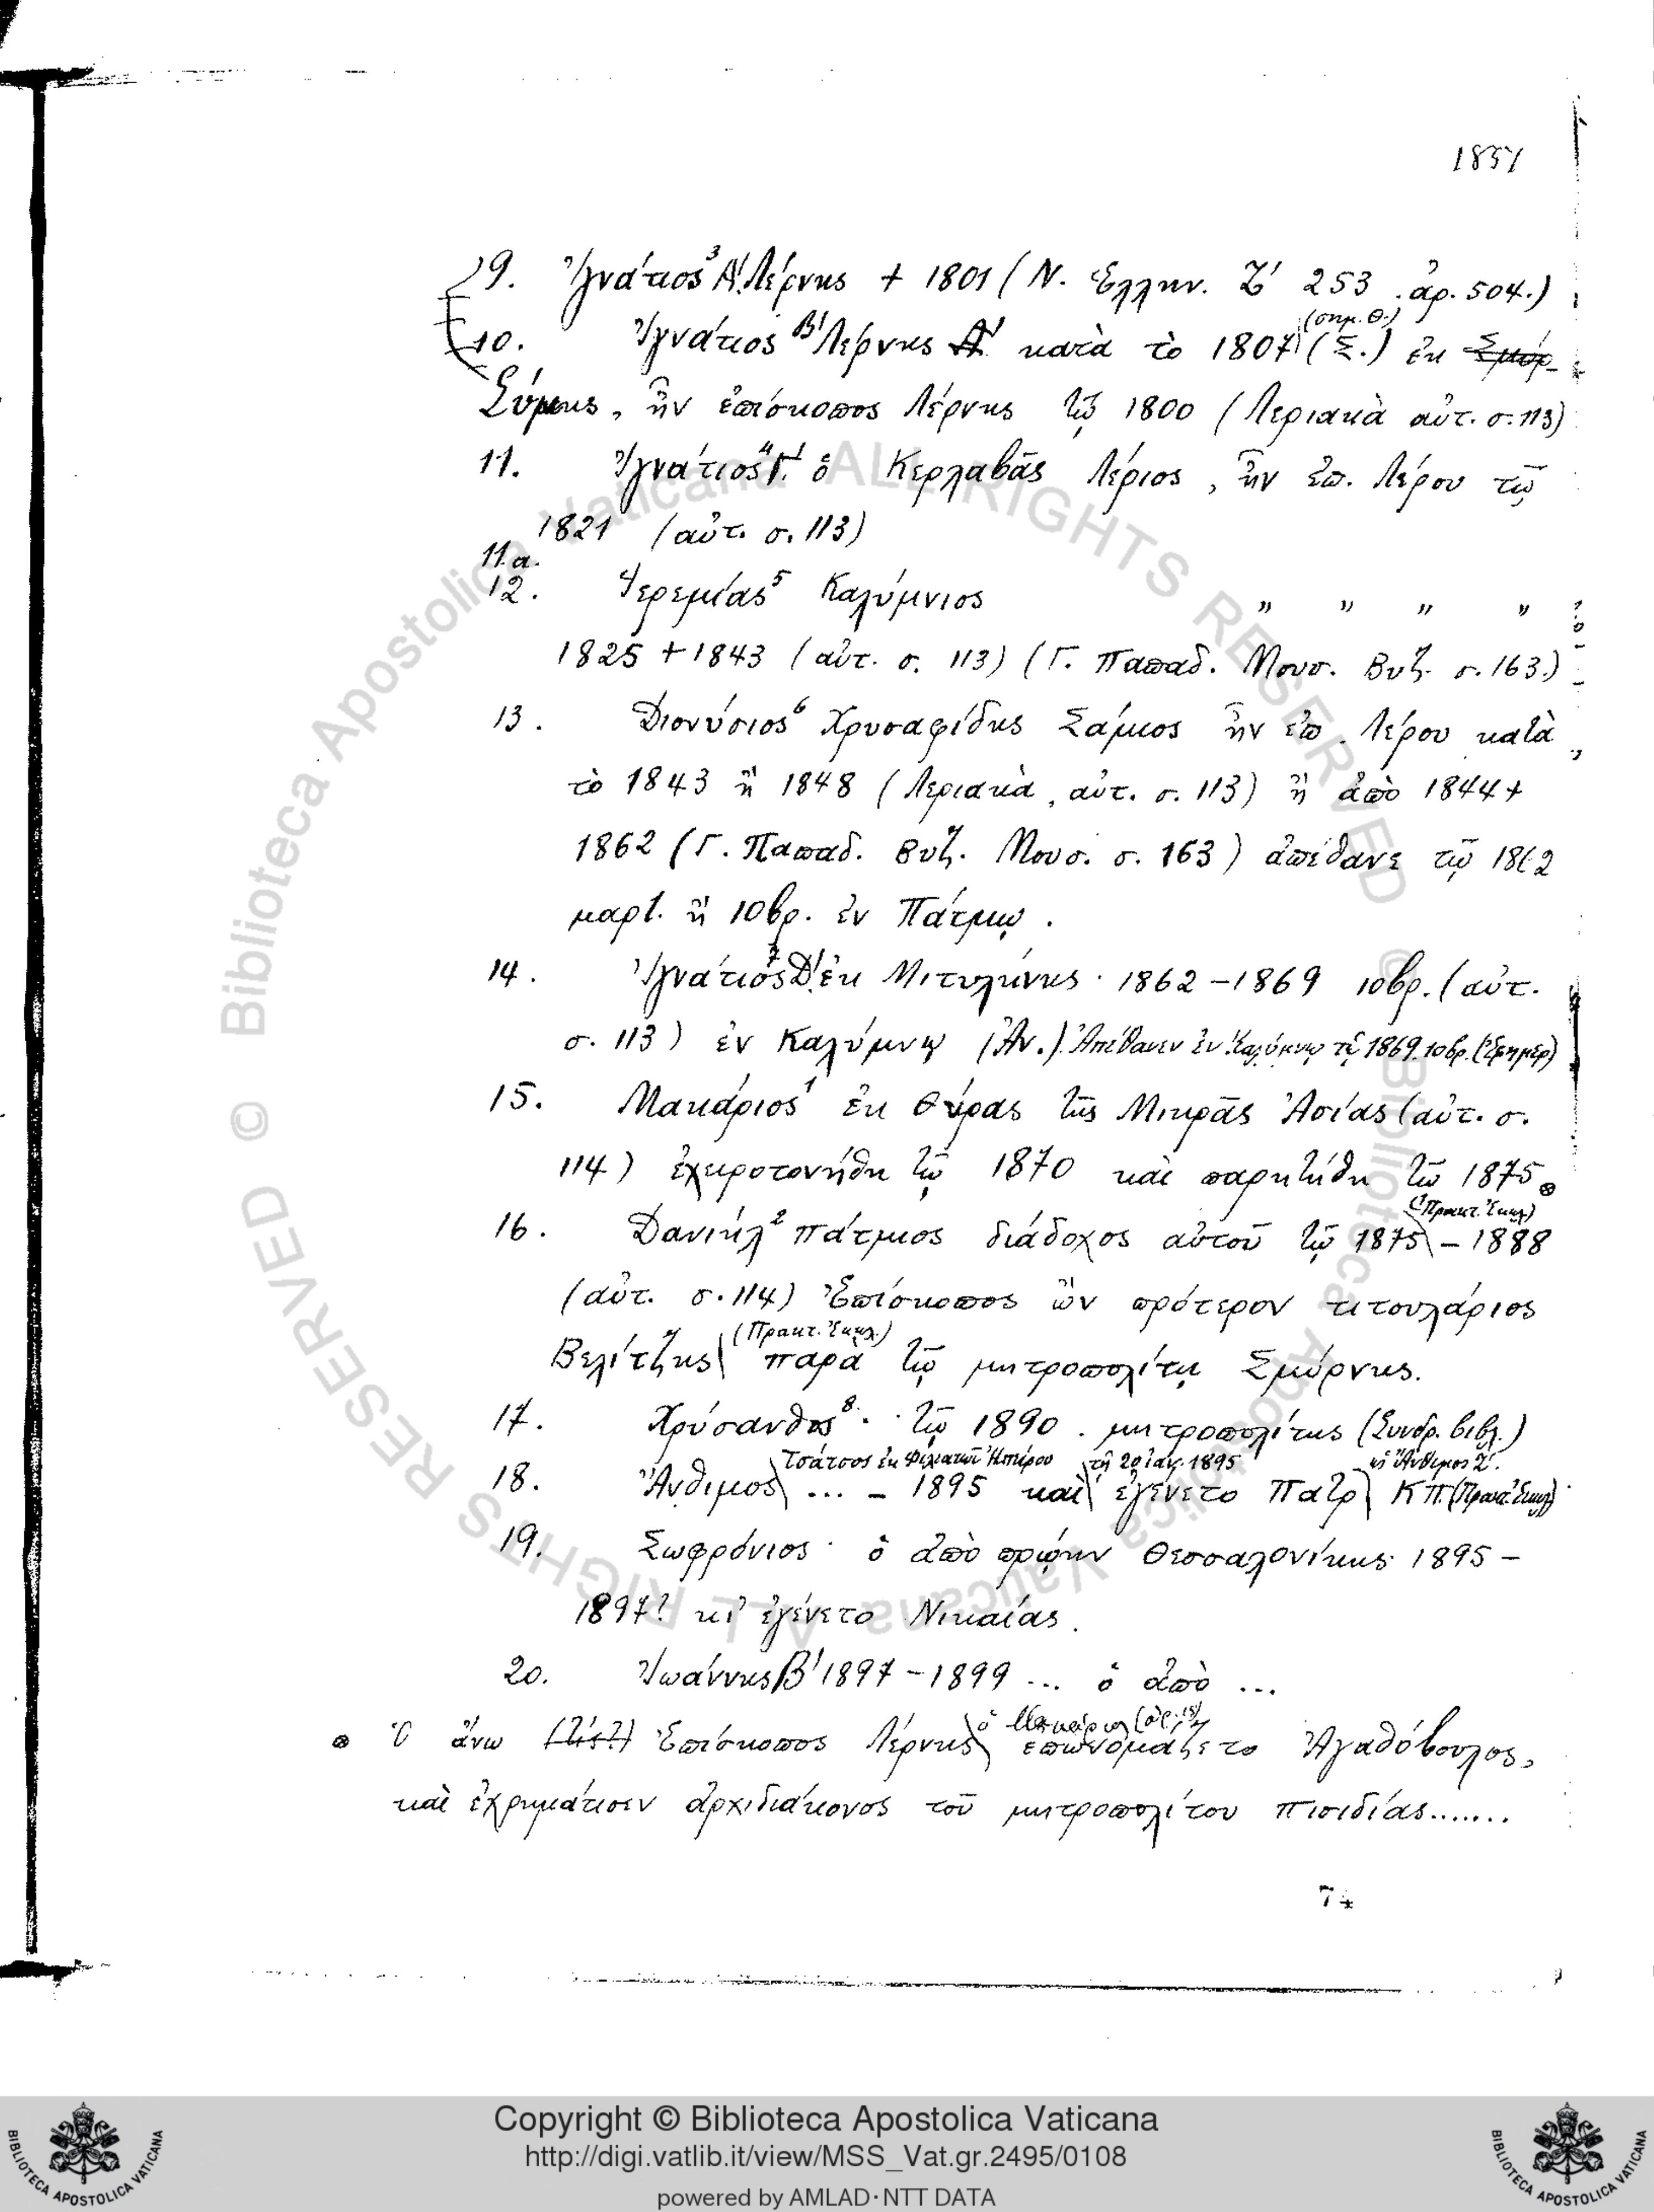 1851
9. Ἰγνάτιος³ Α'. Λέρνης + 1801 (Ν. Ἑλλην. Ζ' 253 ἀρ. 504.)
(σημ. Θ.)
10. Ἰγνάτιος Β' Λέρνης Α' κατὰ τὸ 1807 (Ξ.) ἐκ Σμύρ-
Σύμης, ἦν ἐπίσκοπος Λέρνης τῷ 1800 (Λεριακὰ αὐτ. σ. 113)
11. Ἰγνάτιος⁴ Γ'. ὁ Κερλαβᾶς Λέριος, ἦν ἐπ. Λέρου τῷ
1821 (αὐτ. σ. 113)
11.α.
12. Ἱερεμίας⁵ Καλύμνιος " " " "
1825 + 1843 (αὐτ. σ. 113) (Γ. Παπαδ. Μουσ. Βυζ. σ. 163.)
13. Διονύσιος⁶ Χρυσαφίδης Σάμιος ἦν ἐπ. Λέρου κατὰ
τὸ 1843 ἢ 1848 (Λεριακὰ, αὐτ. σ. 113) ἢ ἀπὸ 1844 +
1862 (Γ. Παπαδ. Βυζ. Μουσ. σ. 163) ἀπέθανε τῷ 1862
μαρτ. ἢ 10βρ. ἐν Πάτμῳ.
14. Ἰγνάτιος⁷ Δ'. ἐκ Μιτυλήνης · 1862 – 1869 10βρ. (αὐτ.
σ. 113) ἐν Καλύμνῳ (Ἀν.). Ἀπέθανεν ἐν Καλύμνῳ τῷ 1869. 10βρ. (Ἐφημερ)
15. Μακάριος¹ ἐκ Θύρας τῆς Μικρᾶς Ἀσίας (αὐτ. σ.
114) ἐχειροτονήθη τῷ 1870 καὶ παρητήθη τῷ 1875 ⊗
(Πρακτ. Ἐκκλ)
16. Δανιήλ² Πάτμιος διάδοχος αὐτοῦ τῷ 1875 – 1888
(αὐτ. σ. 114) Ἐπίσκοπος ὢν πρότερον τιτουλάριος
(Πρακτ. Ἐκκλ.)
Βελίτζης παρὰ τῷ μητροπολίτῃ Σμύρνης.
17. Χρύσανθος⁸ · τῷ 1890. μητροπολίτης (Συνδρ. βιβλ.)
Τσάτσος ἐκ Φιλιατῶν Ἠπείρου τῇ 20 ἰαν. 1895 ὡς Ἄνθιμος Ζ'.
18. Ἄνθιμος ... – 1895 καὶ ἐγένετο Πατρ ΚΠ. (Πρακτ. Ἐκκλ)
19. Σωφρόνιος · ὁ ἀπὸ πρῴην Θεσσαλονίκης 1895 –
1897? κ' ἐγένετο Νικαίας.
20. Ἰωάννης Β' 1897 – 1899 ... ὁ ἀπὸ ...
ὁ Μακάριος (ἀρ. 15)
⊗ Ὁ ἄνω Ἐπίσκοπος Λέρνης ἐπωνομάζετο Ἀγαθόβουλος,
καὶ ἐχρημάτισεν ἀρχιδιάκονος τοῦ μητροπολίτου Πισιδίας.......
74
© Biblioteca Apostolica Vaticana ALL RIGHTS RESERVED © Biblioteca Apostolica Vaticana ALL RIGHTS RESERVED
Copyright © Biblioteca Apostolica Vaticana
http://digi.vatlib.it/view/MSS_Vat.gr.2495/0108
powered by AMLAD·NTT DATA
BIBLIOTECA APOSTOLICA VATICANA
BIBLIOTECA APOSTOLICA VATICANA